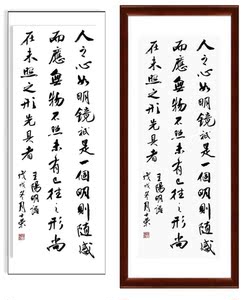 人之心如明镜祗是一個明则随感
而應無物不照未有已往之形尚
在未照之形先具者
王陽明語
人之心如明镜祗是一個明则随感
而應無物不照未有已往之形尚
在未照之形先具者
王陽明語